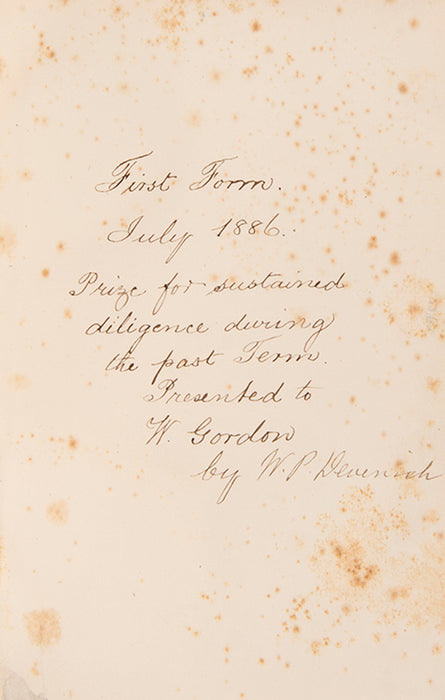 First Form.
July 1886.
Prize for sustained
diligence during
the past Term.
Presented to
W. Gordon
by W. P. Devenish